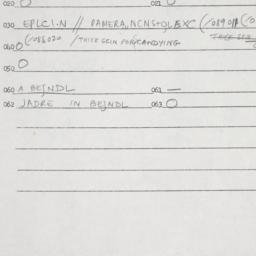 020 O 021 O
030 EPLCIN // PAMERA, NCNSTOL, EX (/089011 (/0
040 O (/088020 /THICK SKIN FOR/CANDYING
050 O
060 A BEJNDL 061 —
062 JADRE IN BEJNDL 063 O